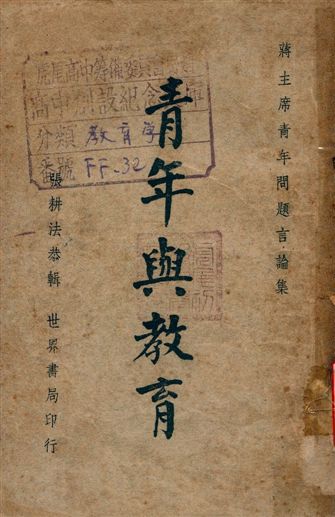 蔣主席青年問題言論集
青年與教育
張耕法恭輯 世界書局印行
虎尾高中籌備委員
高中創設紀念
分類 教育学
番號 FF-32